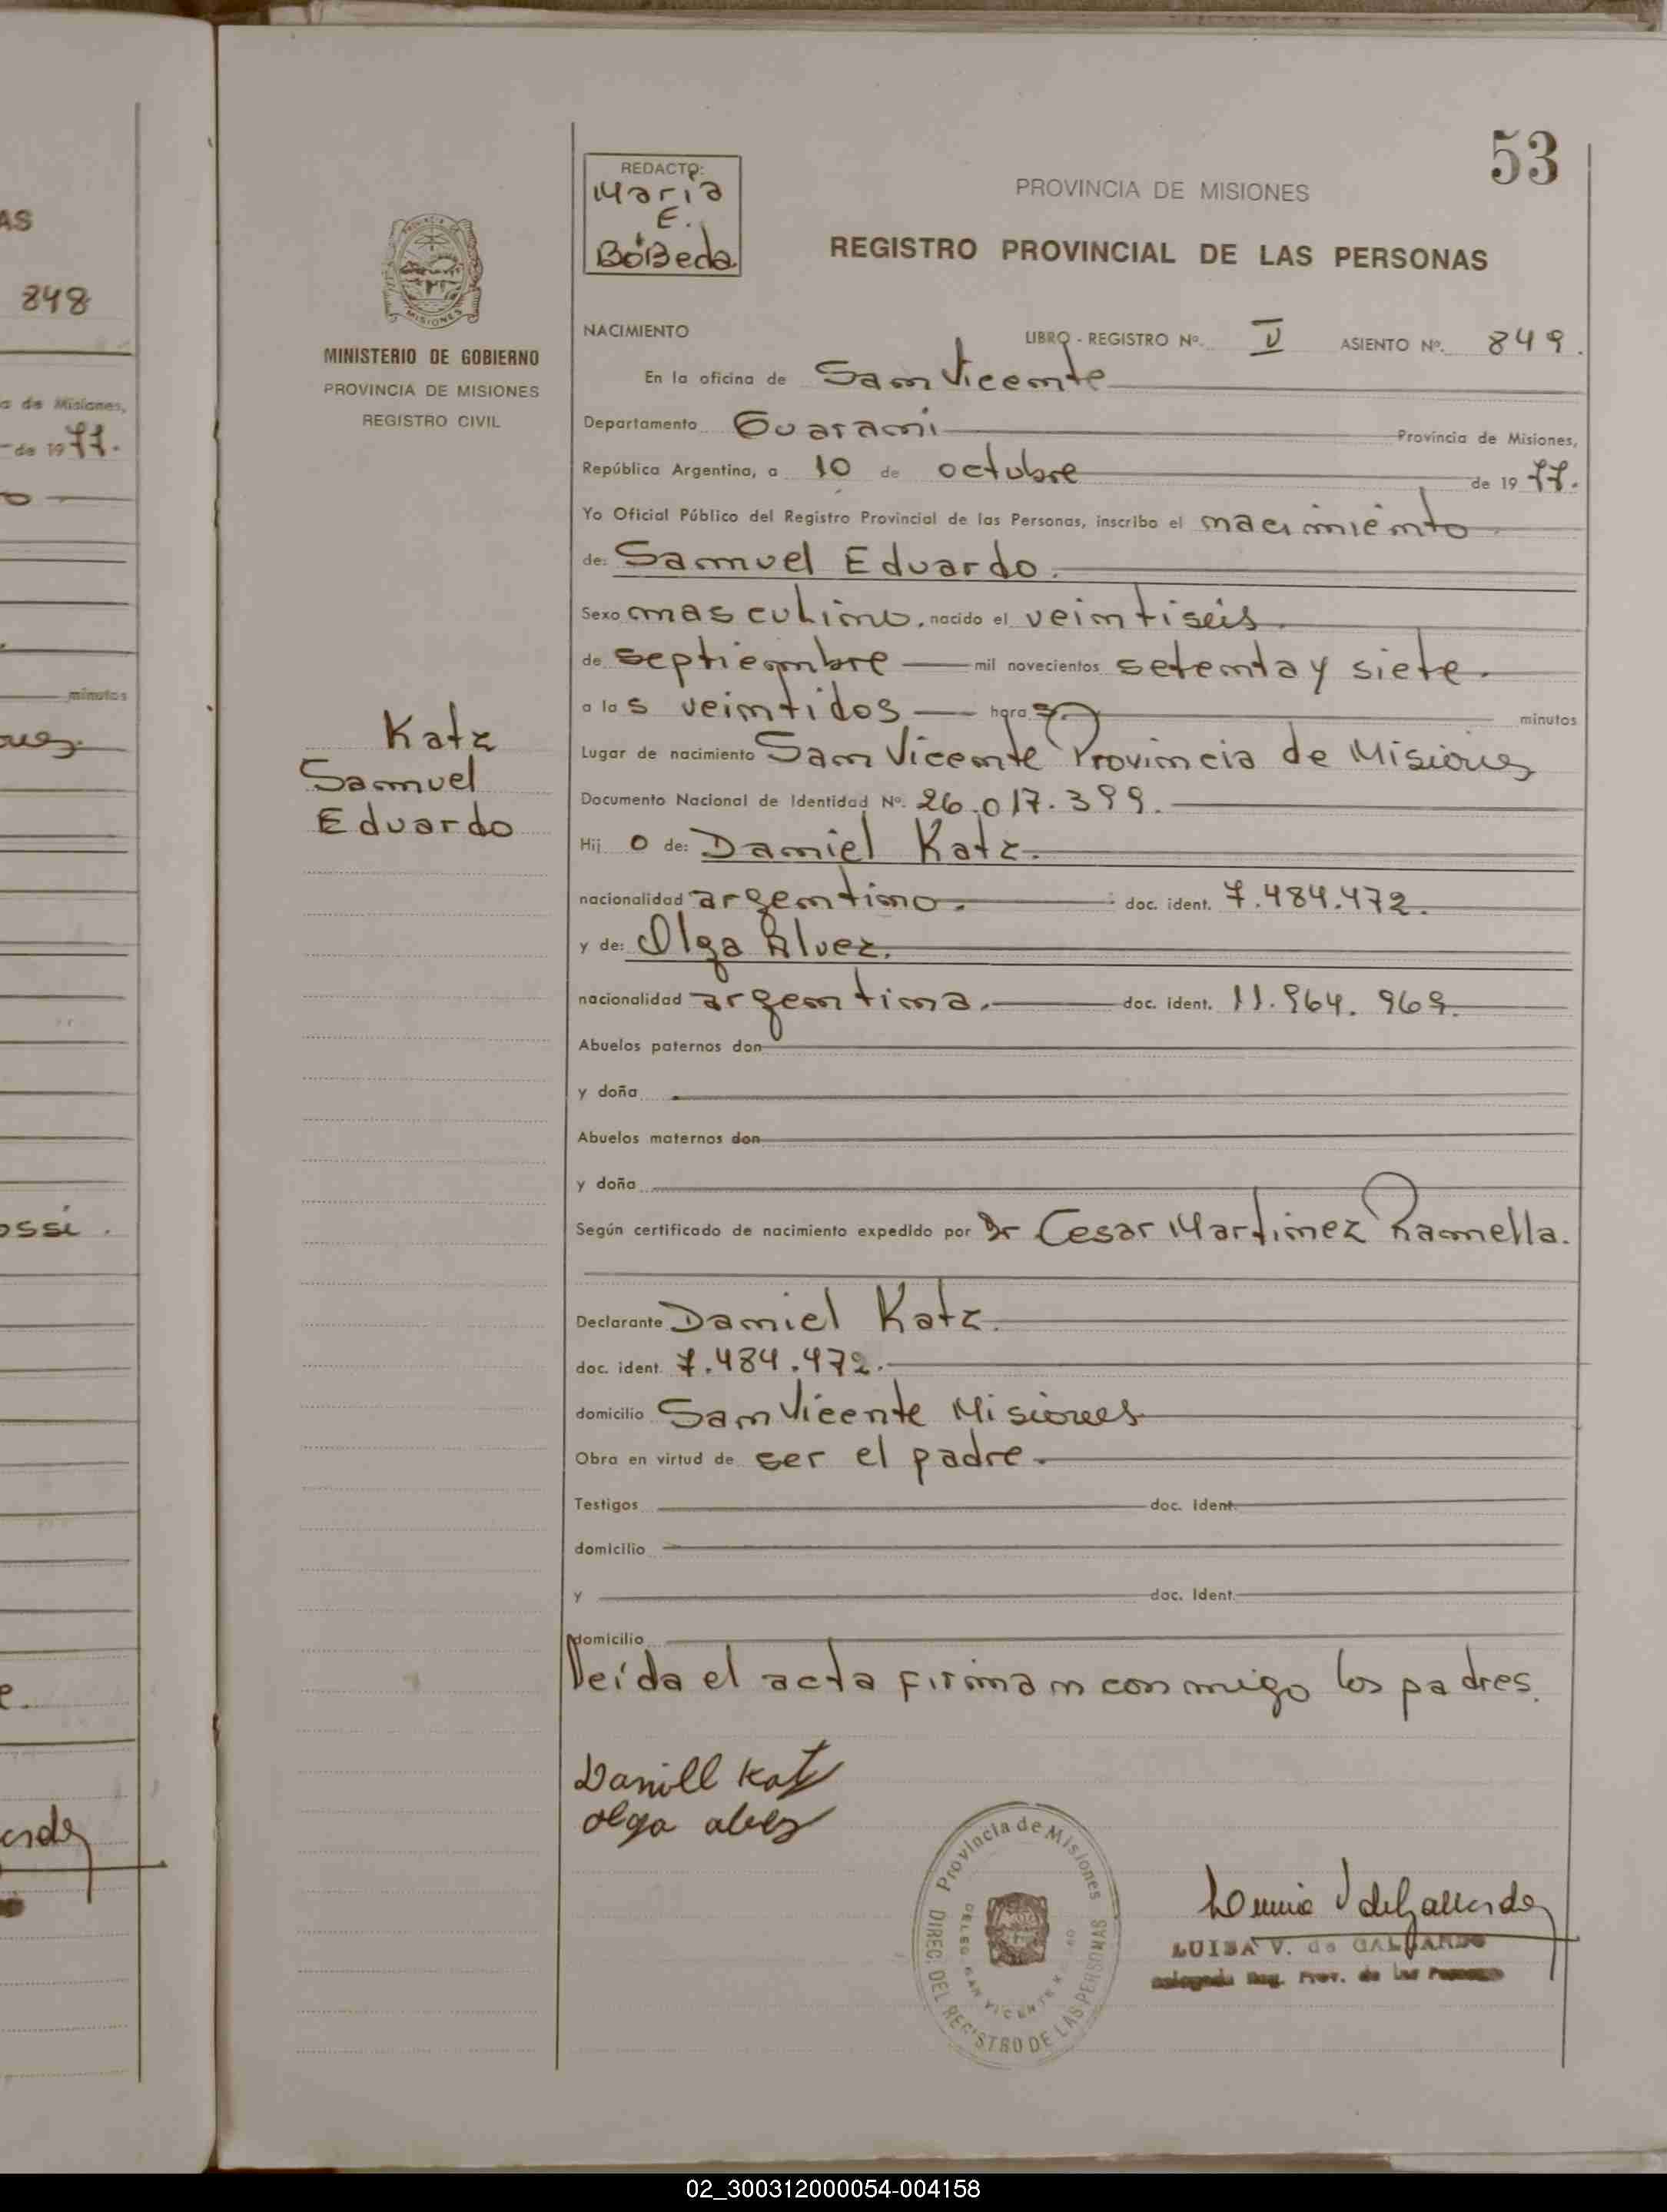 AS
848
a de Misiones,
de 1977.
minutos
ossi.
53
REDACTO:
Maria
E.
Bóbeda
PROVINCIA DE MISIONES
REGISTRO PROVINCIAL DE LAS PERSONAS
MISIONES
MINISTERIO DE GOBIERNO
PROVINCIA DE MISIONES
REGISTRO CIVIL
NACIMIENTO LIBRO - REGISTRO Nº. V ASIENTO Nº. 849.
En la oficina de San Vicente
Departamento Guarani Provincia de Misiones,
República Argentina, a 10 de octubre de 1977.
Yo Oficial Público del Registro Provincial de las Personas, inscribo el nacimiento
de: Samuel Eduardo.
Sexo masculino, nacido el veintiseis
de septiembre mil novecientos setenta y siete.
a las veintidos horas minutos
Lugar de nacimiento San Vicente Provincia de Misiones
Documento Nacional de Identidad Nº. 26.017.399.
Hijo de: Daniel Katz.
nacionalidad argentino. doc. ident. 7.484.472.
y de: Olga Alvez.
nacionalidad argentina. doc. ident. 11.964.969.
Abuelos paternos don
y doña
Abuelos maternos don
y doña
Según certificado de nacimiento expedido por Dr Cesar Martinez Ramella.
Declarante Daniel Katz.
doc. ident. 7.484.472.
domicilio San Vicente Misiones
Obra en virtud de ser el padre.
Testigos doc. Ident.
domicilio
y doc. Ident.
domicilio
Leída el acta firman conmigo los padres.
Katz
Samuel
Eduardo
Daniell Katz
olga alvez
Provincia de Misiones
DIREC. DEL REGISTRO DE LAS PERSONAS
DELEG. SAN VICENTE
LUISA V. de GALLARDO
Delegada Reg. Prov. de las Personas
02_300312000054-004158